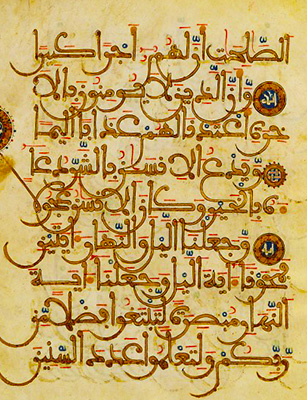 الصلحت ان لهم اجرا كبيرا
وان الذين لا يومنون بالا
خرة اعتدنا لهم عذابا اليما
ويدع الانسن بالشر دعا
ه بالخير وكان الانسن عجولا
وجعلنا اليل والنهار ايتين
فمحونا اية اليل وجعلنا اية
النهار مبصرة لتبتغوا فضلا من
ربكم ولتعلموا عدد السنين